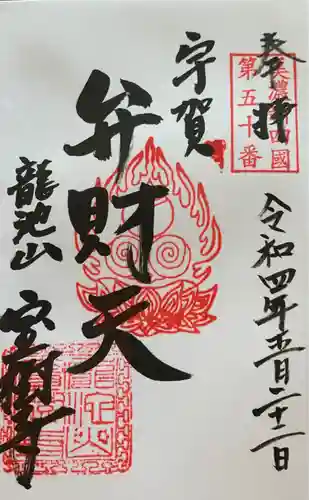 奉拝
美濃四国
第五十番
令和四年五月二十二日
宇賀
弁財天
龍池山
宝樹寺